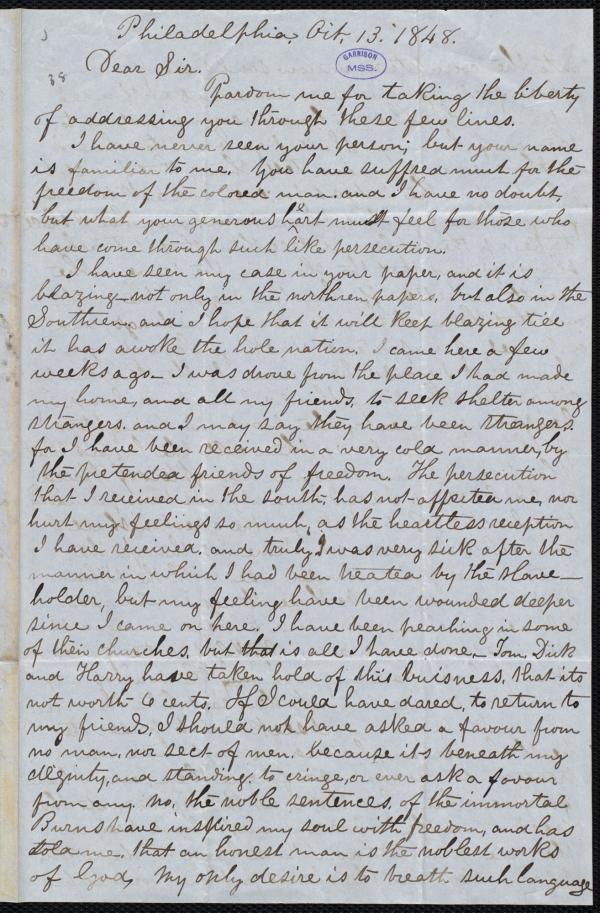 Philadelphia, Oct. 13. 1848.
GARRISON
MSS.
38
Dear Sir.
Pardom me for taking the liberty
of addressing you through these few lines.
I have never seen your person; but your name
is familiar to me. You have suffred much for the
freedom of the colored man. and I have no doubt,
but what your generous heart must feel for those who
have come through such like persecution.
I have seen my case in your paper, and it is
blazing not only in the northren papers, but also in the
Southren, and I hope that it will keep blazing till
it has awoke the hole nation. I came here a few
weeks ago— I was drove from the place I had made
my home, and all my friends, to seek shelter among
strangers. and I may say they have been strangers.
for I have been received in a very cold manner, by
the pretended friends of freedom. The persecution
that I received in the south, has not affected me, nor
hurt my feelings so much, as the heartless reception
I have received. and truly I was very sick after the
manner in which I had been treated by the slave—
holder, but my feeling have been wounded deeper
since I came on here. I have been peaching in some
of their churches, but that is all I have done,— Tom, Dick
and Harry have taken hold of this buisness, that its
not worth 6 cents. If I could have dared, to return to
my friends, I should not have asked a favour from
no man, nor sect of men. because its beneath my
dignity, and standing, to cringe, or ever ask a favour
from any. no, the noble sentences, of the immortal
Burns have inspired my soul with freedom, and has
told me, that an honest man is the noblest works
of God, My only desire is to breath such language